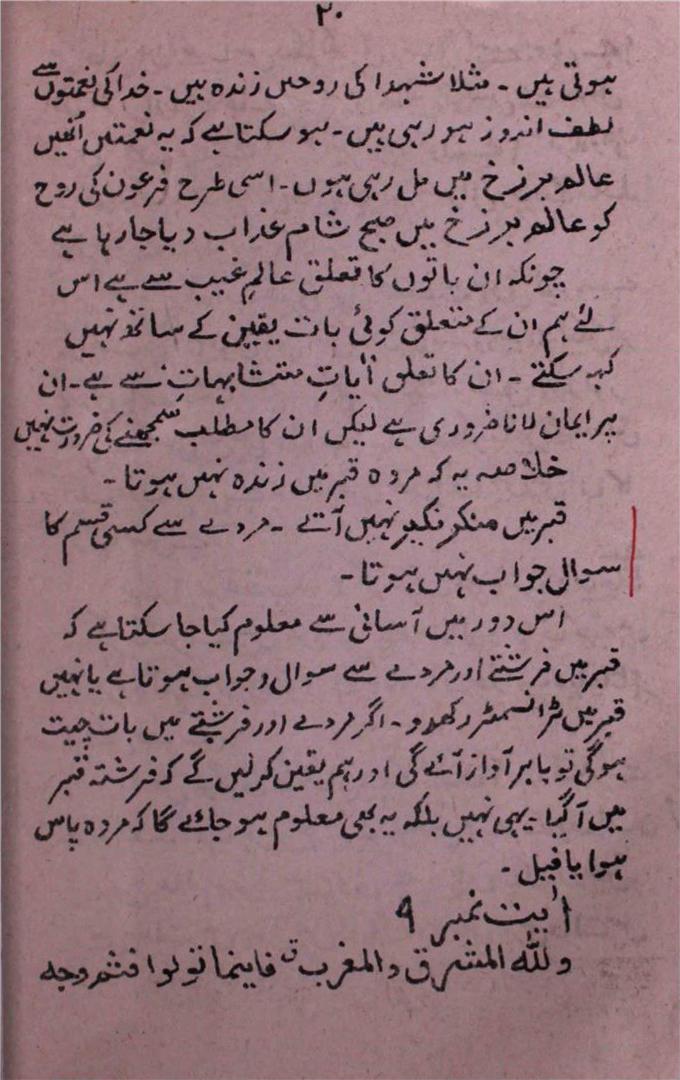 ۲۰
ہوتی ہیں ۔ مثلا شہدا کی روحیں زندہ ہیں ۔ خدا کی نعمتوں سے
لطف اندوز ہو رہی ہیں ۔ ہو سکتا ہے کہ یہ نعمتیں انھیں
عالم برزخ میں مل رہی ہوں ۔ اسی طرح فرعون کی روح
کو عالم برزخ میں صبح شام عذاب دیا جا رہا ہے
چونکہ ان باتوں کا تعلق عالمِ غیب سے ہے اس
لئے ہم ان کے متعلق کوئی بات یقین کے ساتھ نہیں
کہہ سکتے ۔ ان کا تعلق آیاتِ متشابہات سے ہے ۔ ان
پر ایمان لانا ضروری ہے لیکن ان کا مطلب سمجھنے کی ضرورت نہیں
خلاصہ یہ کہ مردہ قبر میں زندہ نہیں ہوتا ۔
قبر میں منکر نکیر نہیں آتے ۔ مردے سے کسی قسم کا
سوال جواب نہیں ہوتا ۔
اس دور میں آسانی سے معلوم کیا جا سکتا ہے کہ
قبر میں فرشتے اور مردے سے سوال و جواب ہوتا ہے یا نہیں
قبر میں ٹرانسمٹر رکھ دو ۔ اگر مردے اور فرشتے میں بات چیت
ہوگی تو باہر آواز آئے گی اور ہم یقین کر لیں گے کہ فرشتہ قبر
میں آ گیا ۔ یہی نہیں بلکہ یہ بھی معلوم ہو جائے گا کہ مردہ پاس
ہوا یا فیل ۔
آیت نمبر ۹
و للّٰہ المشرق و المغرب ق فاینما تولوا فثم وجہ